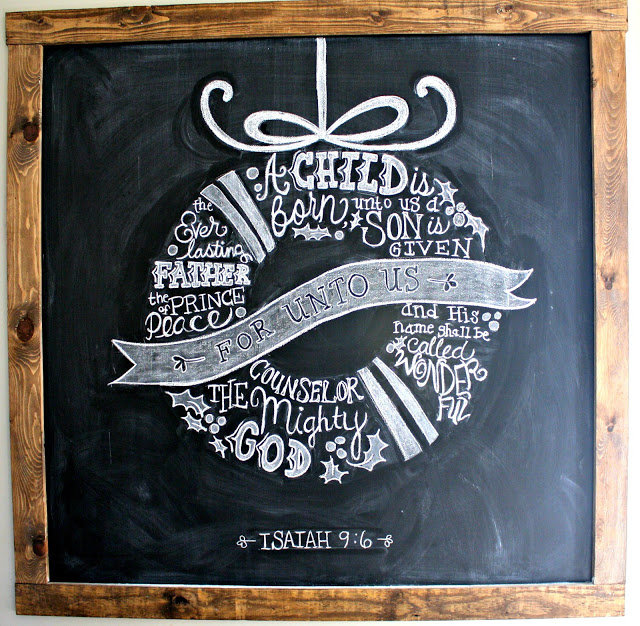 FOR UNTO US
A CHILD is
born,
unto us a
SON is
GIVEN
and His
name shall be
called
WONDER
FUL
COUNSELOR
THE Mighty
GOD
the
Ever
lasting
FATHER
the PRINCE
OF
Peace
ISAIAH 9:6